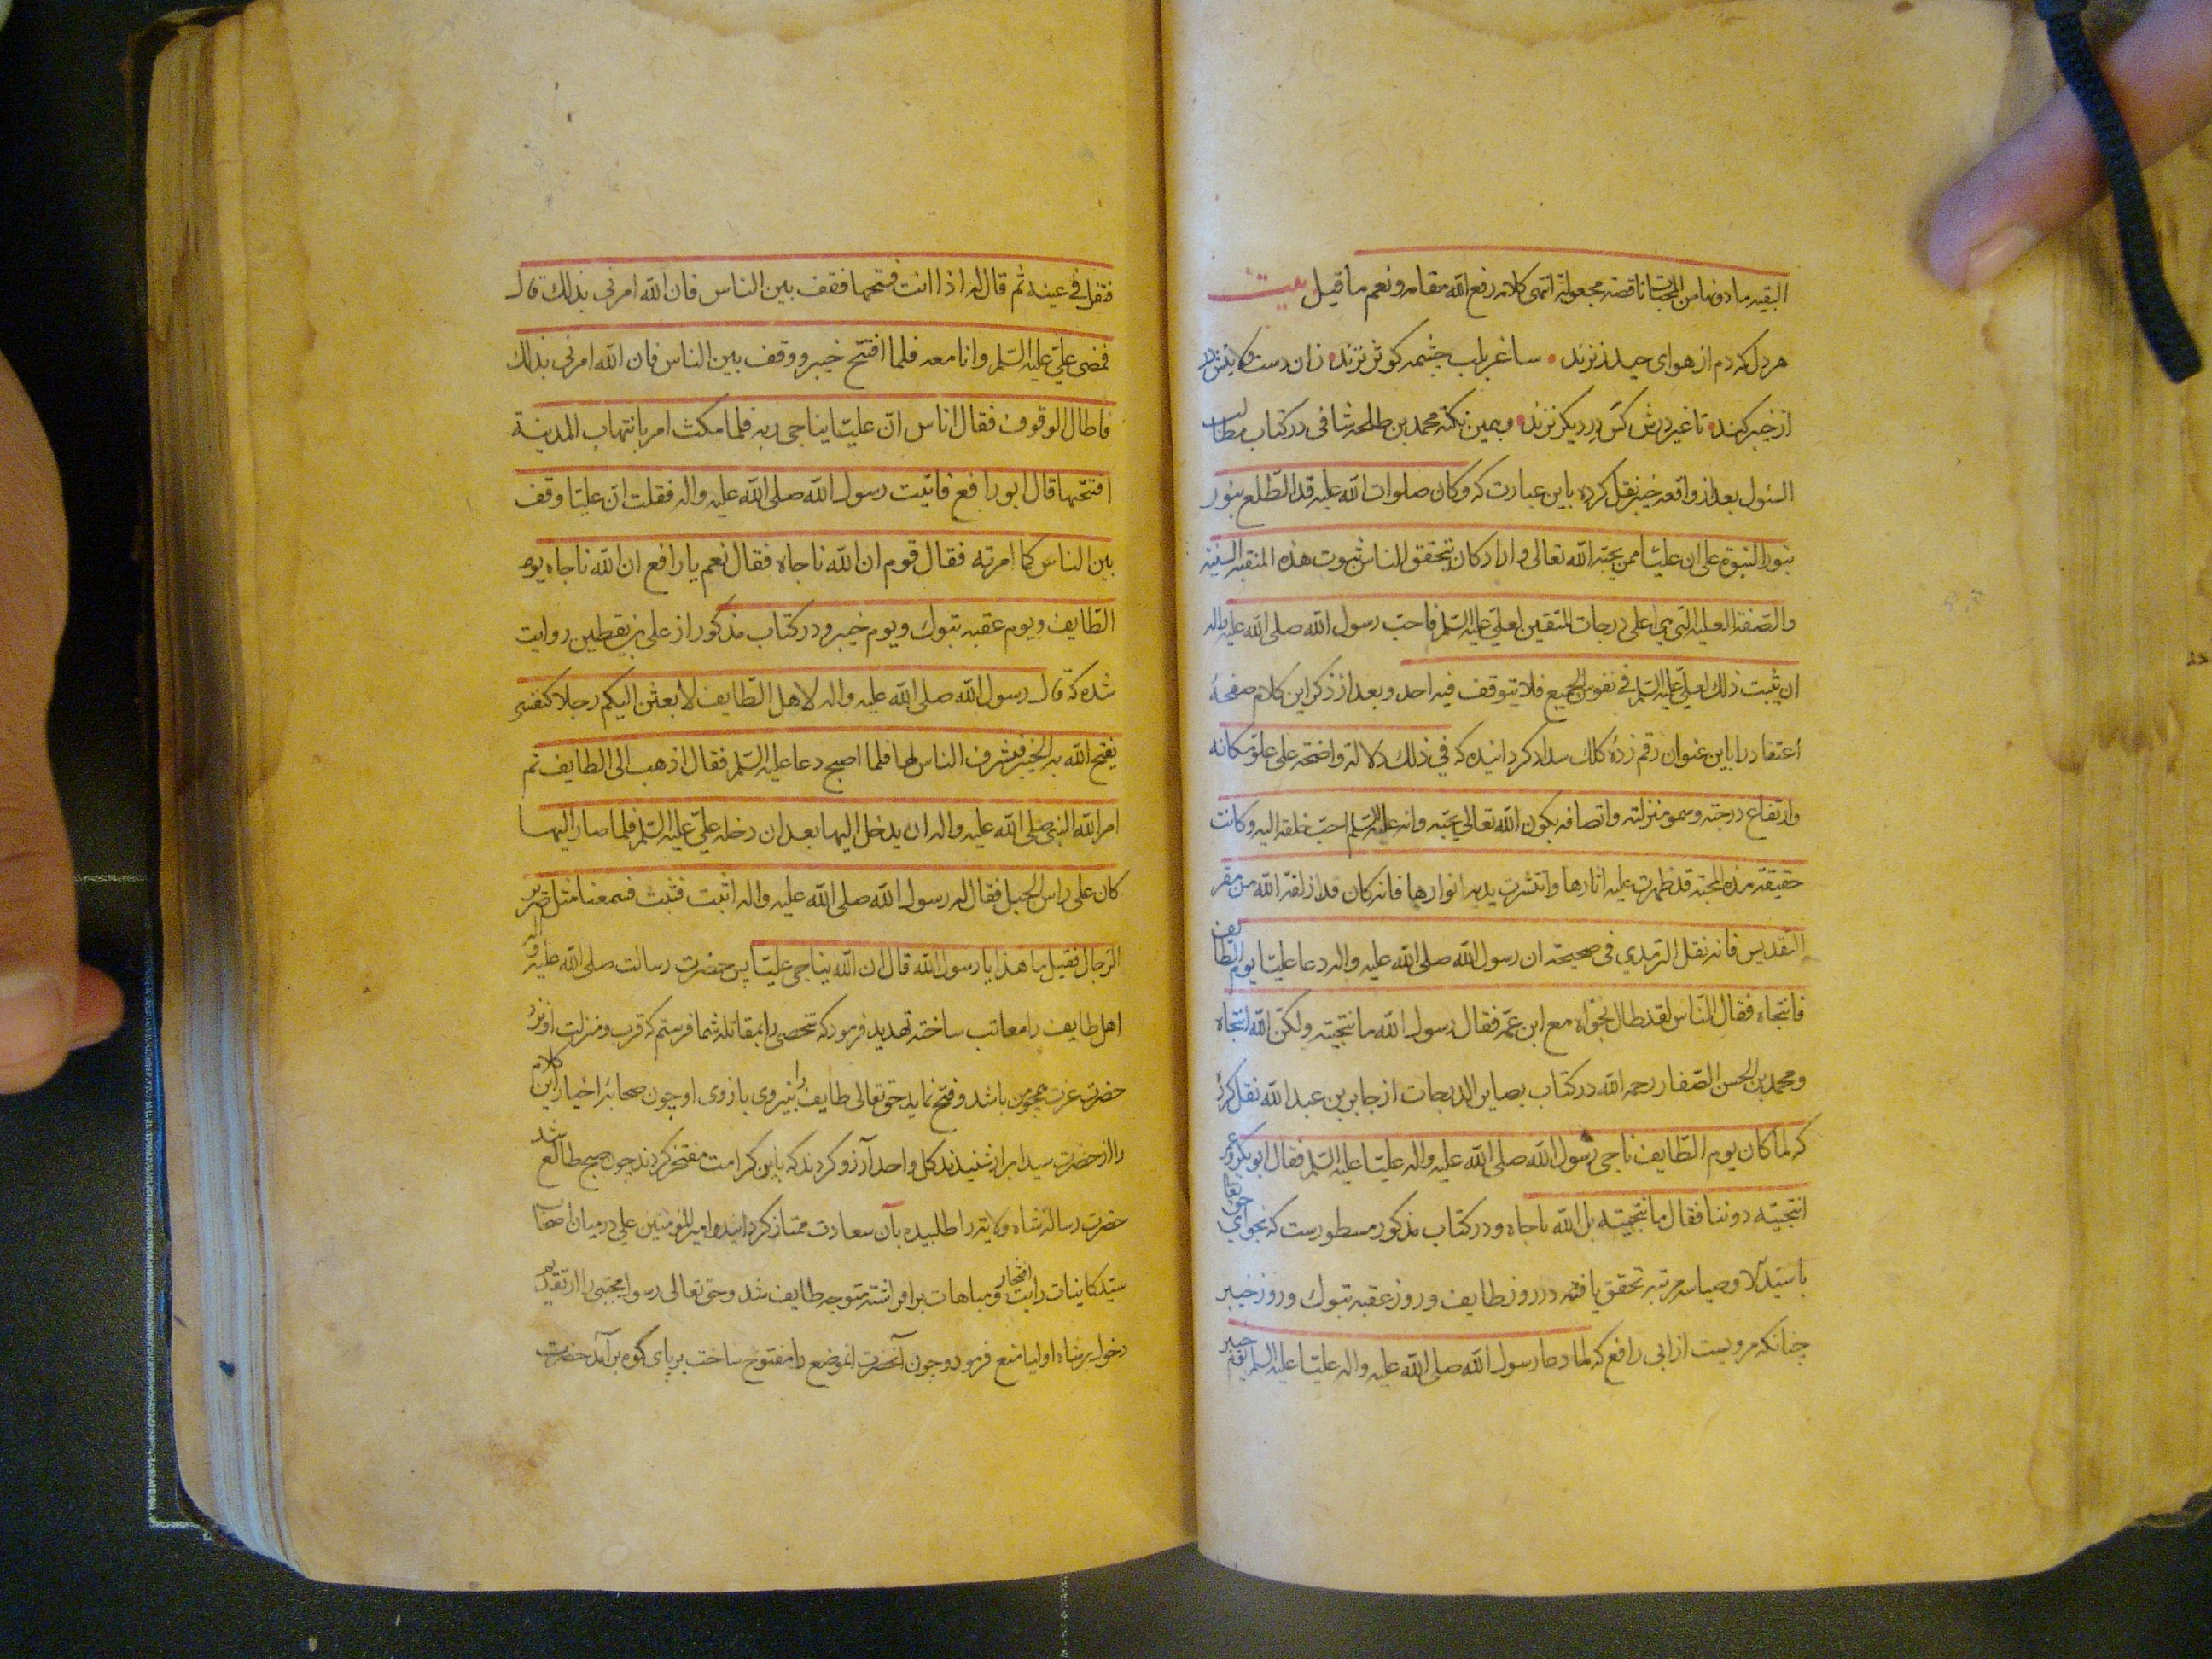 البقيه مادونها من المحبات ناقصة مجعولة انتهى كلامه رفع الله مقامه ونعم ما قيل بيت
هر دل که دم از هوای حیدر نزند ساغر بلب چشمه کوثر نزند زان دست ولایتش در
از خیبر کند تا غیر درش کس در دیگر نزند و همین نکته محمد بن طلحه شافی در کتاب مطالب
السئول بعد از واقعه خیبر نقل کرده باین عبارت که وکان صلوات الله علیه قد اطلع بنور
بنور النبوة على ان عليا ممن يحبه الله تعالى واراد كان يتحقق الناس ثبوت هذه المنقبة السنية
والصفة العلية التي هي اعلى درجات المتقين لعلي عليه السلم فاحب رسول الله صلى الله عليه واله
ان يثبت ذلك لعلي عليه السلم في نفوس الجميع فلا يتوقف فيه احد وبعد از ذکر این کلام صفحهٔ
اعتقاد را باین عنوان رقم زدهٔ کلک سداد کردانیده که في ذلك دلالة واضحة على علو مكانه
وارتفاع درجته وسمو منزلته واتصافه بكون الله تعالى يحبه وانه عليه السلم احب خلقه اليه وكانت
حقيقة هذه المحبة قد ظهرت عليه اثارها وانتشرت لديه انوارها فانه كان قد ازلفه الله من مقر
التقديس فانه نقل الترمذي في صحيحه ان رسول الله صلى الله عليه واله دعا عليا يوم الطائف
فانتجاه فقال الناس لقد طال نجواه مع ابن عمه فقال رسول الله ما انتجيته ولكن الله انتجاه
ومحمد بن الحسن الصفار رحمه الله در کتاب بصایر الدرجات از جابر بن عبد الله نقل کرده
که لما كان يوم الطايف ناجى رسول الله صلى الله عليه واله عليا عليه السلم فقال ابو بكر وعمر
انتجيته دوننا فقال ما انتجيته بل الله ناجاه ودر کتاب مذکور مسطورست که نجوای حق تعالی
با سید اوصیا سه مرتبه تحقق یافته در روز طایف و روز عقبه تبوک و روز خیبر
چنانکه مرویست از ابی رافع که لما دعا رسول الله صلى الله عليه واله عليا عليه السلم يوم خيبر
فتفل في عينه ثم قال له اذا انت فتحتها فقف بين الناس فان الله امرني بذلك قال
فمضى علي عليه السلم وانا معه فلما افتتح خيبر ووقف بين الناس فان الله امرني بذلك
فاطال الوقوف فقال الناس ان عليا يناجي ربه فلما مكث امر بانتهاب المدينة
افتتحها قال ابو رافع فاتيت رسول الله صلى الله عليه واله فقلت ان عليا وقف
بين الناس كما امرته فقال قوم ان الله ناجاه فقال نعم يا رافع ان الله ناجاه يوم
الطايف ويوم عقبه تبوك ويوم خيبر ودر کتاب مذکور از علی بن یقطین روایت
شده که قال رسول الله صلى الله عليه واله لاهل الطايف لأبعثن اليكم رجلا كنفسي
يفتح الله به الخيبر فتشرف الناس لها فلما اصبح دعا عليه السلم فقال اذهب الى الطايف ثم
امر الله النبي صلى الله عليه واله ان يدخل اليها بعد ان دخله علي عليه السلم فلما صار اليها
كان على راس الجبل فقال له رسول الله صلى الله عليه واله اثبت فثبت فسمعنا مثل صرير
الرجال فقيل ما هذا يا رسول الله قال ان الله يناجي عليا پس حضرت رسالت صلى الله عليه واله
اهل طایف را معاتب ساخته تهدید فرمود که شخصی را بمقاتله شما فرستم که قرب و منزلت او نزد
حضرت عزت همچو من باشد و فتح نماید حق تعالی طایف را بنیروی بازوی او چون صحابهٔ اخیار این کلام
را از حضرت سید ابرار شنیدند کل واحد آرزو کردند که باین کرامت مفتخر کردند چون صبح طالع شد
حضرت رسالة شاه ولایة را طلبیده بآن سعادت ممتاز کردانید و امیر المؤمنین علی در میان اصحاب
سید کاینات رایت افتخار و مباهات بر افراشته متوجه طایف شد و حق تعالی رسول مجتبی را
دخول بر شاه اولیا منع فرمود و چون آنحضرت انموضع را مفتوح ساخت بر پای کوه بر آمد حضرت